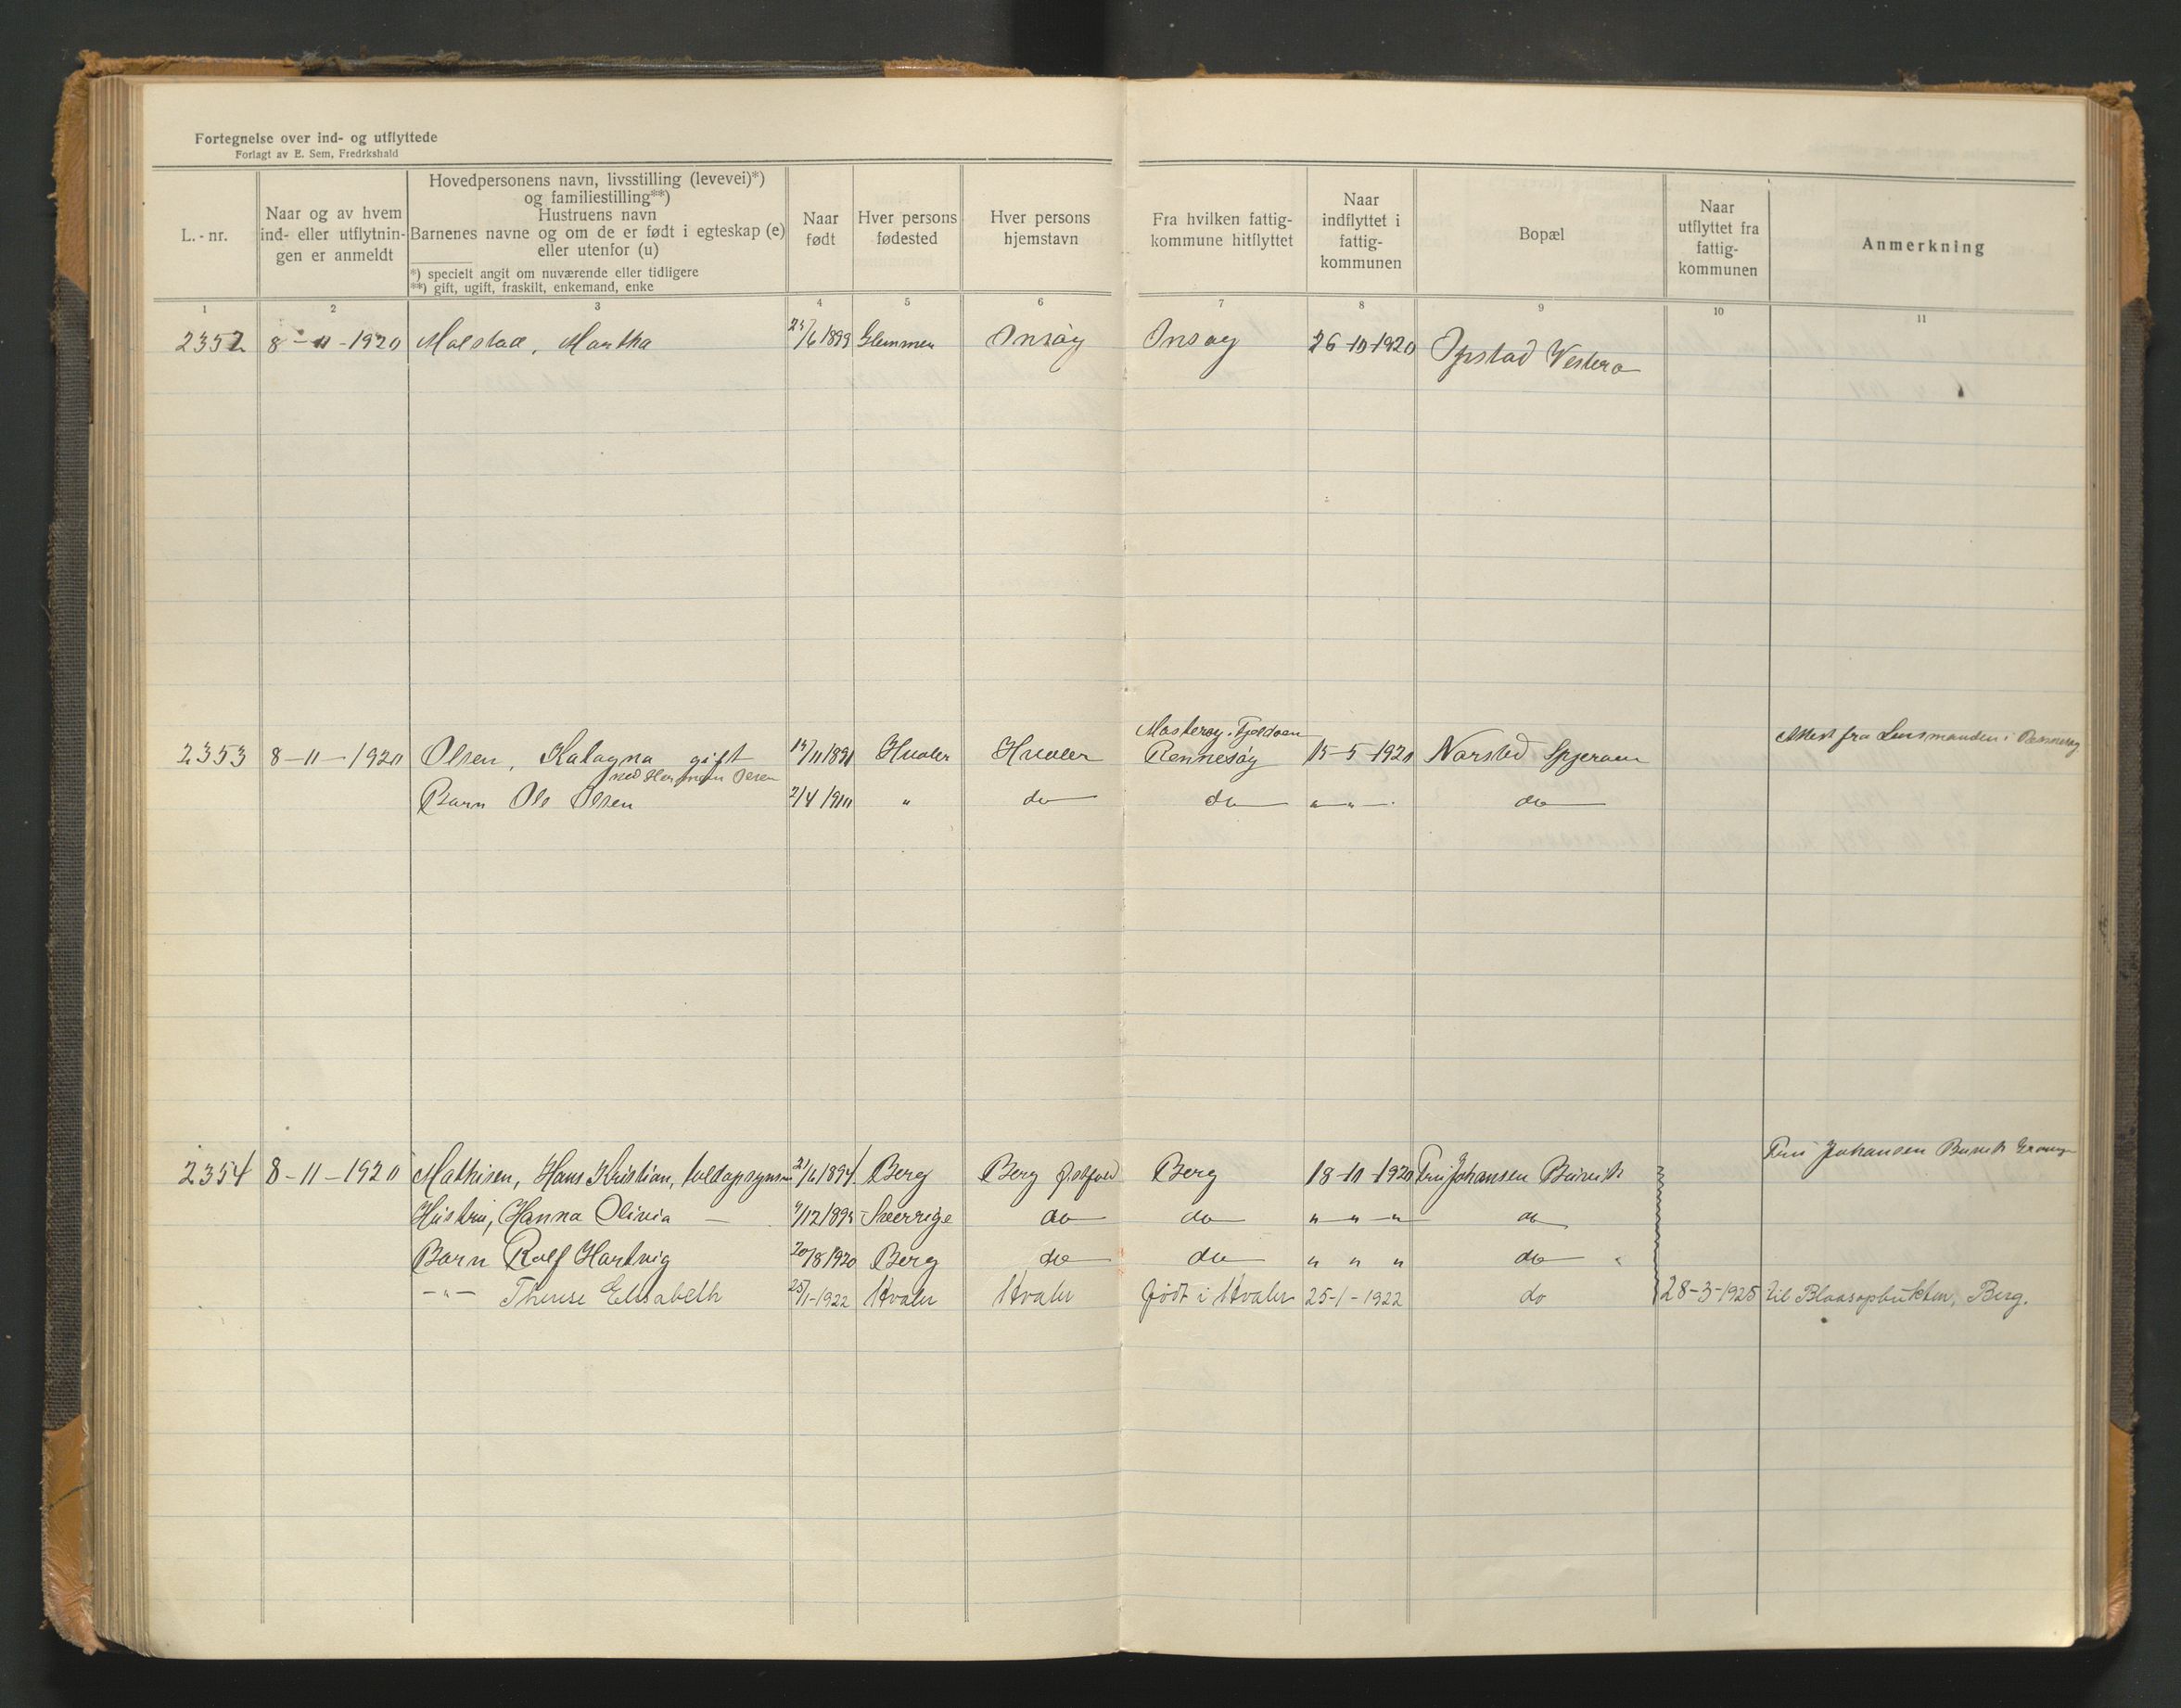 Fortegnelse over ind- og utflyttede
Forlagt av E. Sem, Fredrkshald
L. - nr.
Naar og av hvem
ind- eller utflytnin-
gen er anmeldt
Hovedpersonens navn, livsstilling (levevei)*)
og familiestilling**)
Hustruens navn
Barnenes navne og om de er født i egteskap (e)
eller utenfor (u)
*) specielt angit om nuværende eller tidligere
**) gift, ugift, fraskilt, enkemand, enke
Naar
født
Hver persons
fødested
Hver persons
hjemstavn
Fra hvilken fattig-
kommune hitflyttet
Naar
indflyttet i
fattig-
kommunen
Bopæl
Naar
utflyttet fra
fattig-
kommunen
Anmerkning
1 2 3 4 5 6 7 8 9 10 11
2352 8-11-1920 Molstad, Martha 23/6 1899 Glemmen Onsøy Onsøy 26-10-1920 Vestero
Fjeldøen
2353 8-11-1920 Olsen, gift 15/11 1891 Hvaler Hvaler Rennesøy 15-5-1920 Norsted Spjeroen Attest fra Lensmanden i Rennesøy
med Herman Olsen
Barn Ole Olsen 2/4 1911 " do do " " do
2354 8-11-1920 Mathisen, Hans Kristian, 21/6 1894 Berg Berg Østfold Berg 18-10-1920 Fru Johansen Fru Johansen
Hustru, Hanna Olivia — Sverrige do do " " " do
Barn Rolf Hartvig 20/8 1920 Berg do do " " " do
-"- Therese Elisabeth 25/1-1922 Hvaler Hvaler født i Hvaler 25-1-1922 do 28-3-1925 til Blaasopbukten, Berg.